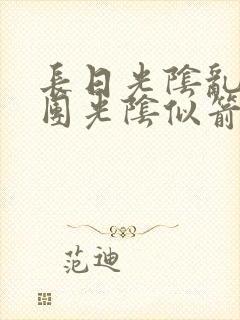 長日光陰亂
團光陰似箭
范迪